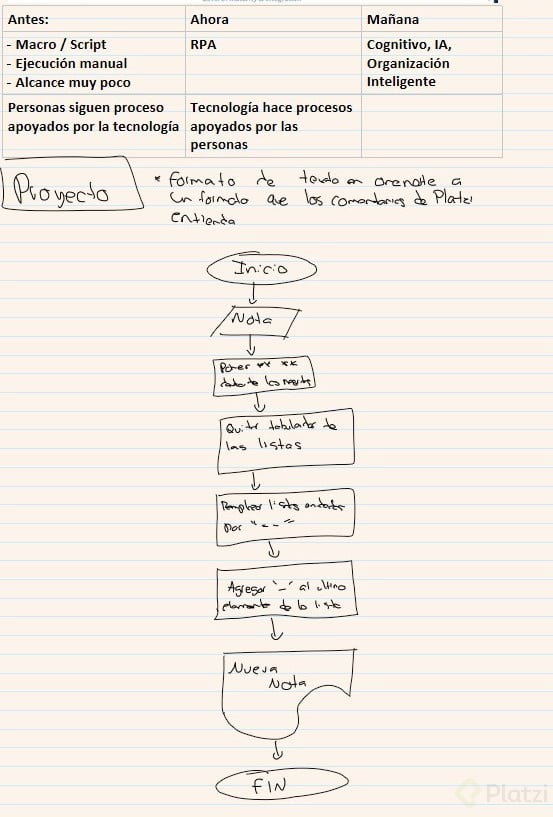 Antes: Ahora Mañana
- Macro / Script RPA Cognitivo, IA,
- Ejecución manual Organización
- Alcance muy poco Inteligente
Personas siguen proceso Tecnología hace procesos
apoyados por la tecnología apoyados por las
personas
Proyecto
* Formato de texto en a
un formato que los comentarios de Platzi
entienda
Inicio
Nota
Poner ** **
Quitar tabulador de
las listas
listas
por "--"
Agregar '-' al ultimo
elemento de la lista
Nueva
Nota
FIN
Platzi